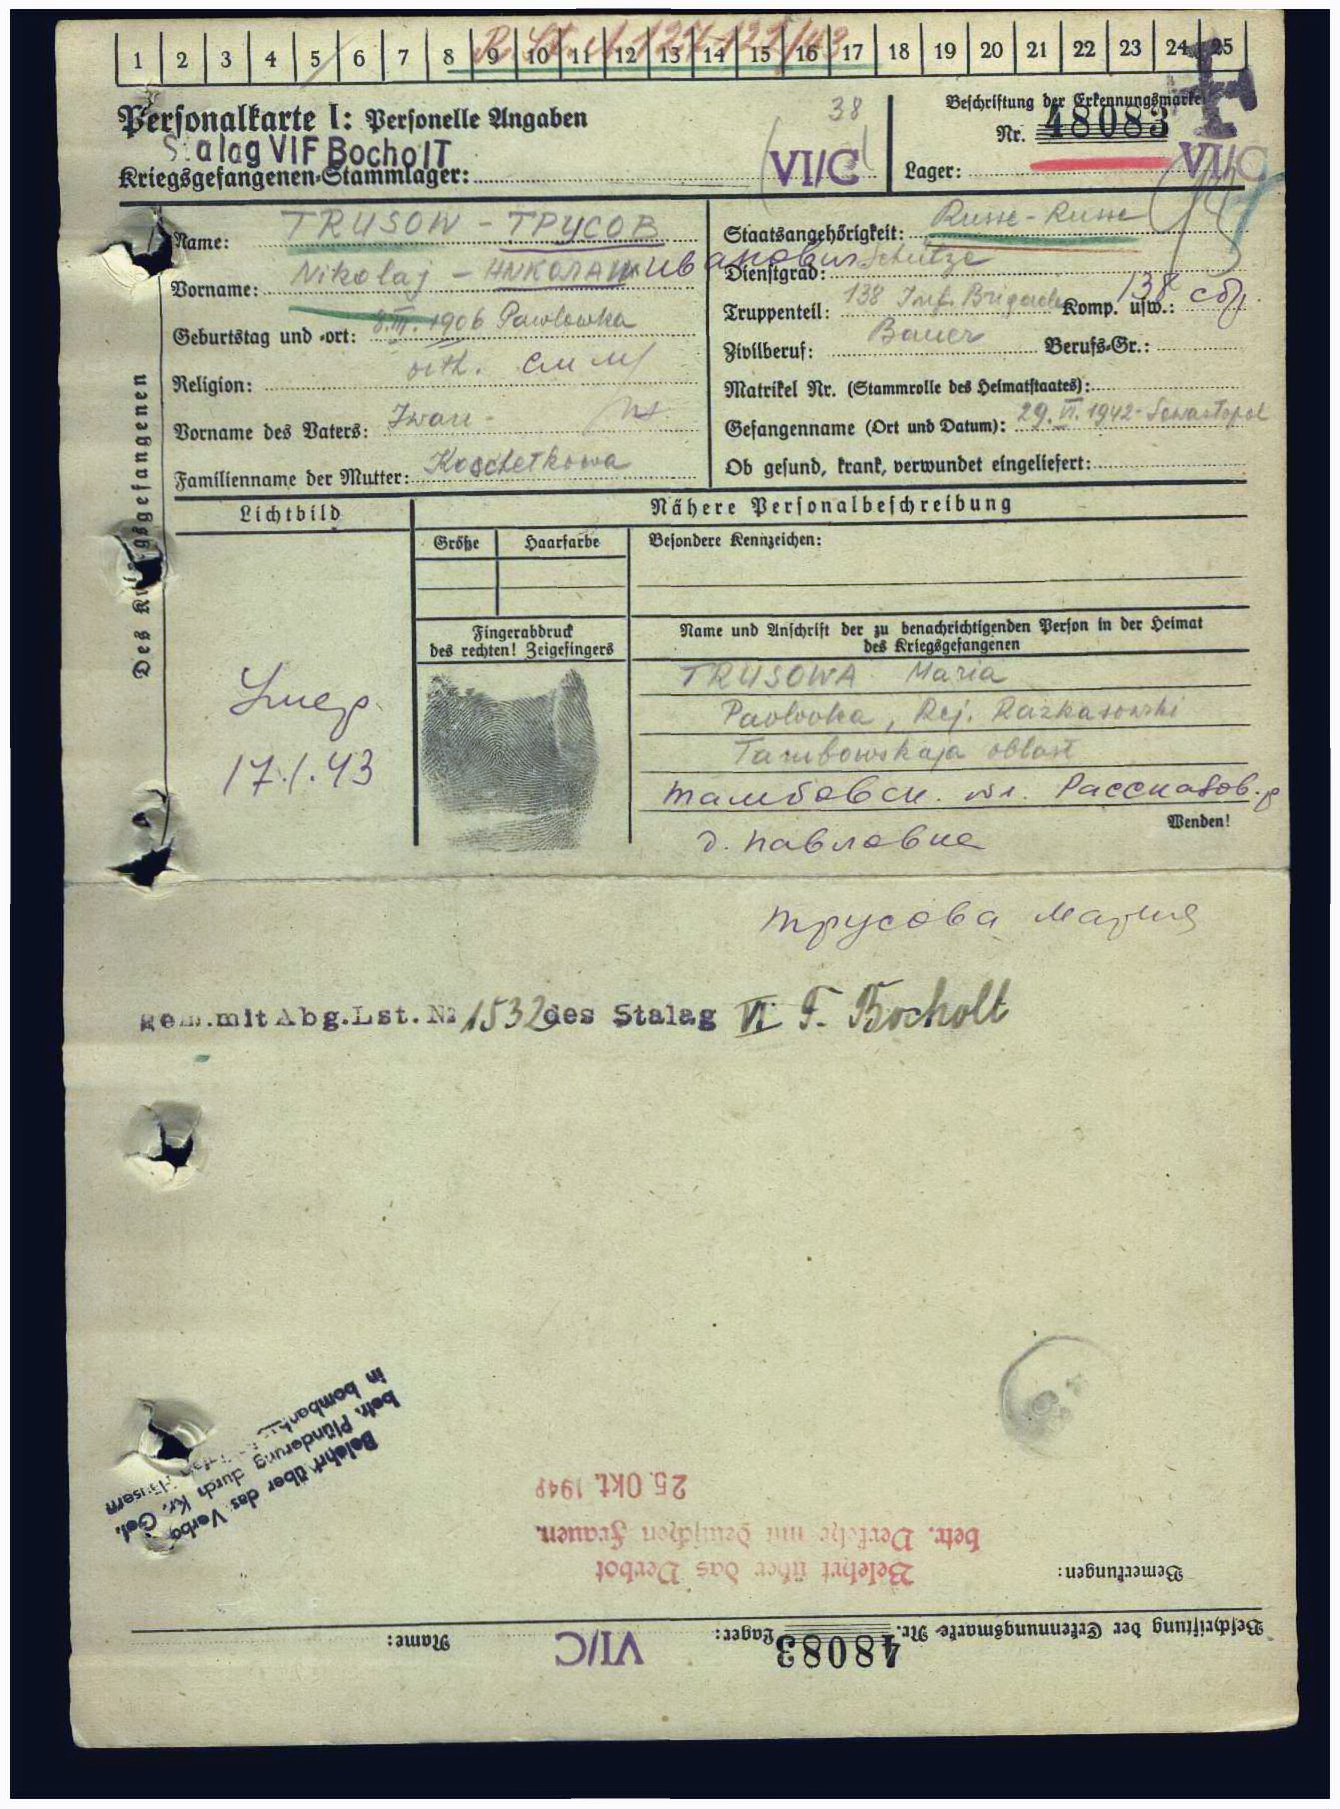 1 2 3 4 5 6 7 8 9 10 11 12 13 14 15 16 17 18 19 20 21 22 23 24 25
Personalkarte I: Personelle Angaben
38
Beschriftung der Erkennungsmarke
Nr. 48083
Stalag VIF Bocholt
Kriegsgefangenen-Stammlager: VI/C
Lager: VI/C
Des Kriegsgefangenen
Name: TRUSOW - ТРУСОВ
Vorname: Nikolaj - НИКОЛАЙ Иванович
Geburtstag und -ort: 8.III.1906 Pawlowka
Religion: orth.
Vorname des Vaters: Iwan
Familienname der Mutter: Koschetkowa
Staatsangehörigkeit: Russe - Russe
Dienstgrad: Schütze
Truppenteil: 138 Inf. Brigade Komp. usw.: 138 сбр.
Zivilberuf: Bauer Berufs-Gr.:
Matrikel Nr. (Stammrolle des Heimatstaates):
Gefangenname (Ort und Datum): 29.VI.1942 - Sewastopol
Ob gesund, krank, verwundet eingeliefert:
Lichtbild
Nähere Personalbeschreibung
Größe Haarfarbe Besondere Kennzeichen:
Fingerabdruck
des rechten! Zeigefingers
Name und Anschrift der zu benachrichtigenden Person in der Heimat
des Kriegsgefangenen
Умер
17.1.43
TRUSOWA Maria
Pavlovka, Rej. Razkasowski
Tambowskaja oblast
Тамбовск. обл. Рассказов. р
д. Павловка
Wenden!
Трусова Мария
gem. mit Abg. Lst. № 1532 des Stalag VI F. Bocholt
Belehrt über das Verbot
betr. Plünderung durch Kr. Gef.
in bombardierten Häusern
25. Okt. 1942
Belehrt über das Verbot
betr. Verkehr mit deutschen Frauen.
Bemerkungen:
Beschriftung der Erkennungsmarke Nr. 48083 Lager: VI/C Name: